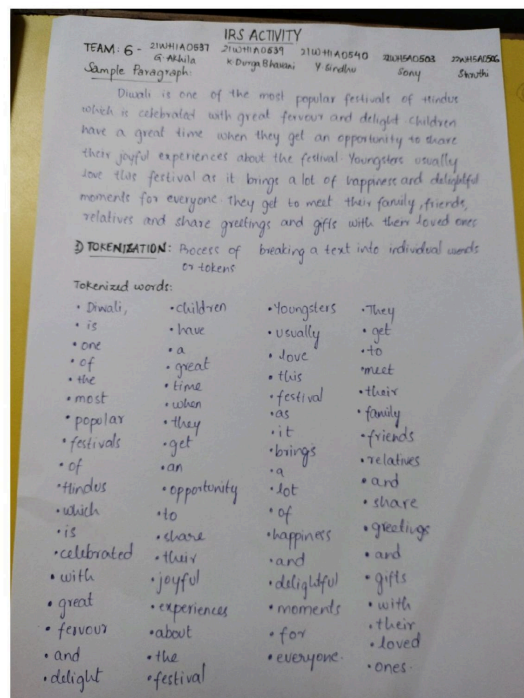 IRS ACTIVITY
TEAM: 6 - 21WH1A0537 21WH1A0539 21WH1A0540 22WH5A0503 22WH5A0506
G. Akhila K Durga Bhavani Y Sindhu Sony Shruthi
Sample Paragraph:
Diwali is one of the most popular festivals of Hindus
which is celebrated with great fervour and delight. Children
have a great time when they get an opportunity to share
their joyful experiences about the festival. Youngsters usually
love this festival as it brings a lot of happiness and delightful
moments for everyone. they get to meet their family, friends,
relatives and share greetings and gifts with their loved ones
1) TOKENIZATION: Process of breaking a text into individual words
or tokens
Tokenized words:
• Diwali,
• is
• one
• of
• the
• most
• popular
• festivals
• of
• Hindus
• which
• is
• celebrated
• with
• great
• fervour
• and
• delight
• children
• have
• a
• great
• time
• when
• they
• get
• an
• opportunity
• to
• share
• their
• joyful
• experiences
• about
• the
• festival
• Youngsters
• usually
• love
• this
• festival
• as
• it
• brings
• a
• lot
• of
• happiness
• and
• delightful
• moments
• for
• everyone.
• They
• get
• to
• meet
• their
• family
• friends
• relatives
• and
• share
• greetings
• and
• gifts
• with
• their
• loved
• ones.